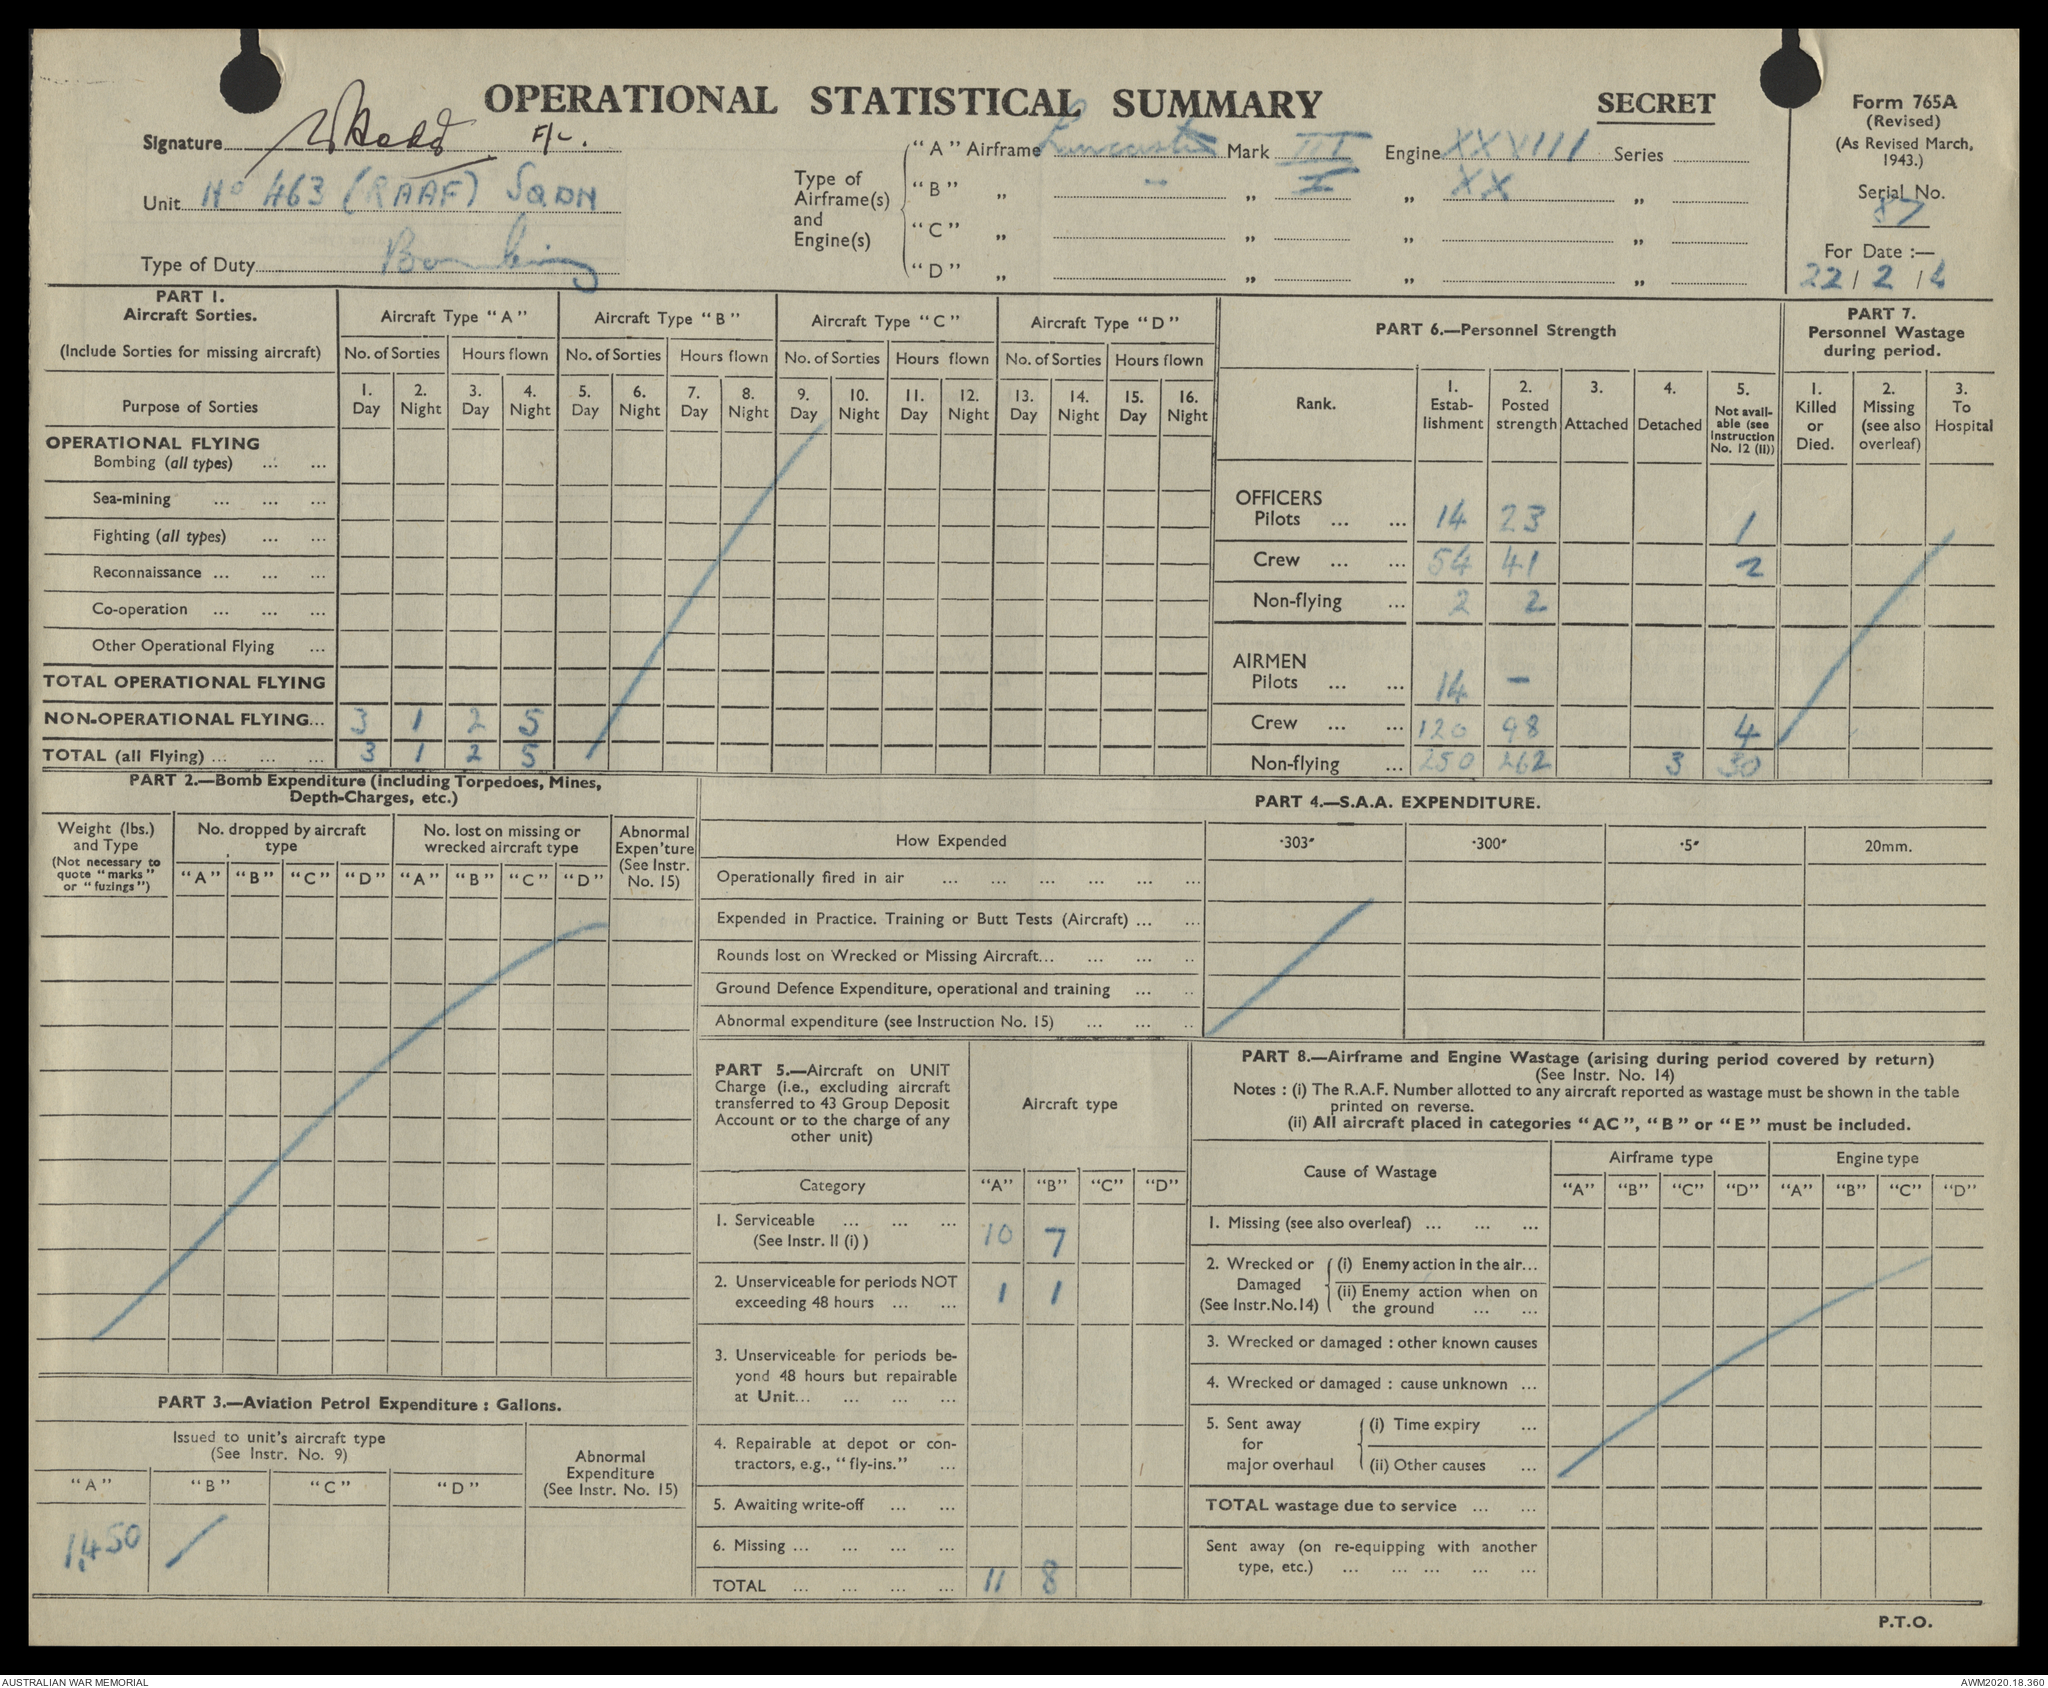 OPERATIONAL STATISTICAL SUMMARY
SECRET
Form 765A
(Revised)
(As Revised March,
1943.)
Serial No.
87
For Date :—
22 / 2 / 4
Signature F/L.
Unit No 463 (RAAF) SQDN
Type of Duty Bombing
Type of
Airframe(s)
and
Engine(s)
"A" Airframe Lancaster Mark III Engine XXVIII Series
"B" „ - „ I „ XX „
"C" „ „ „ „
"D" „ „ „ „
PART I.
Aircraft Sorties.
(Include Sorties for missing aircraft)
Aircraft Type "A" Aircraft Type "B" Aircraft Type "C" Aircraft Type "D"
No. of Sorties Hours flown No. of Sorties Hours flown No. of Sorties Hours flown No. of Sorties Hours flown
Purpose of Sorties
1. 2. 3. 4. 5. 6. 7. 8. 9. 10. 11. 12. 13. 14. 15. 16.
Day Night Day Night Day Night Day Night Day Night Day Night Day Night Day Night
OPERATIONAL FLYING
Bombing (all types) ... ...
Sea-mining ... ... ...
Fighting (all types) ... ...
Reconnaissance ... ... ...
Co-operation ... ... ...
Other Operational Flying ...
TOTAL OPERATIONAL FLYING
NON-OPERATIONAL FLYING... 3 1 2 5
TOTAL (all Flying) ... ... ... 3 1 2 5
PART 6.—Personnel Strength
Rank.
1. Estab-lishment
2. Posted strength
3. Attached
4. Detached
5. Not avail-able (see Instruction No. 12 (II))
OFFICERS
Pilots ... ... 14 23 1
Crew ... ... 54 41 2
Non-flying ... 2 2
AIRMEN
Pilots ... ... 14 -
Crew ... ... 120 98 4
Non-flying ... 250 262 3 30
PART 7.
Personnel Wastage
during period.
1. Killed or Died.
2. Missing (see also overleaf)
3. To Hospital
PART 2.—Bomb Expenditure (including Torpedoes, Mines,
Depth-Charges, etc.)
Weight (lbs.)
and Type
(Not necessary to
quote "marks"
or "fuzings")
No. dropped by aircraft
type
No. lost on missing or
wrecked aircraft type
Abnormal
Expen'ture
(See Instr.
No. 15)
"A" "B" "C" "D" "A" "B" "C" "D"
PART 4.—S.A.A. EXPENDITURE.
How Expended ·303" ·300" ·5" 20mm.
Operationally fired in air ... ... ... ... ... ...
Expended in Practice. Training or Butt Tests (Aircraft) ... ...
Rounds lost on Wrecked or Missing Aircraft... ... ... ..
Ground Defence Expenditure, operational and training ... ..
Abnormal expenditure (see Instruction No. 15) ... ... ..
PART 3.—Aviation Petrol Expenditure : Gallons.
Issued to unit's aircraft type
(See Instr. No. 9)
Abnormal
Expenditure
(See Instr. No. 15)
"A" "B" "C" "D"
1,450
PART 5.—Aircraft on UNIT
Charge (i.e., excluding aircraft
transferred to 43 Group Deposit
Account or to the charge of any
other unit)
Aircraft type
Category "A" "B" "C" "D"
1. Serviceable ... ... ... 10 7
(See Instr. II (i) )
2. Unserviceable for periods NOT
exceeding 48 hours ... ... 1 1
3. Unserviceable for periods be-
yond 48 hours but repairable
at Unit... ... ... ...
4. Repairable at depot or con-
tractors, e.g., "fly-ins." ...
5. Awaiting write-off ... ...
6. Missing ... ... ... ...
TOTAL ... ... ... ... 11 8
PART 8.—Airframe and Engine Wastage (arising during period covered by return)
(See Instr. No. 14)
Notes : (i) The R.A.F. Number allotted to any aircraft reported as wastage must be shown in the table
printed on reverse.
(ii) All aircraft placed in categories "AC", "B" or "E" must be included.
Cause of Wastage
Airframe type Engine type
"A" "B" "C" "D" "A" "B" "C" "D"
1. Missing (see also overleaf) ... ... ...
2. Wrecked or (i) Enemy action in the air...
Damaged (ii) Enemy action when on
(See Instr.No.14) the ground ... ...
3. Wrecked or damaged : other known causes
4. Wrecked or damaged : cause unknown ...
5. Sent away (i) Time expiry ...
for
major overhaul (ii) Other causes ...
TOTAL wastage due to service ... ...
Sent away (on re-equipping with another
type, etc.) ... ... ... ... ...
P.T.O.
AUSTRALIAN WAR MEMORIAL
AWM2020.18.360